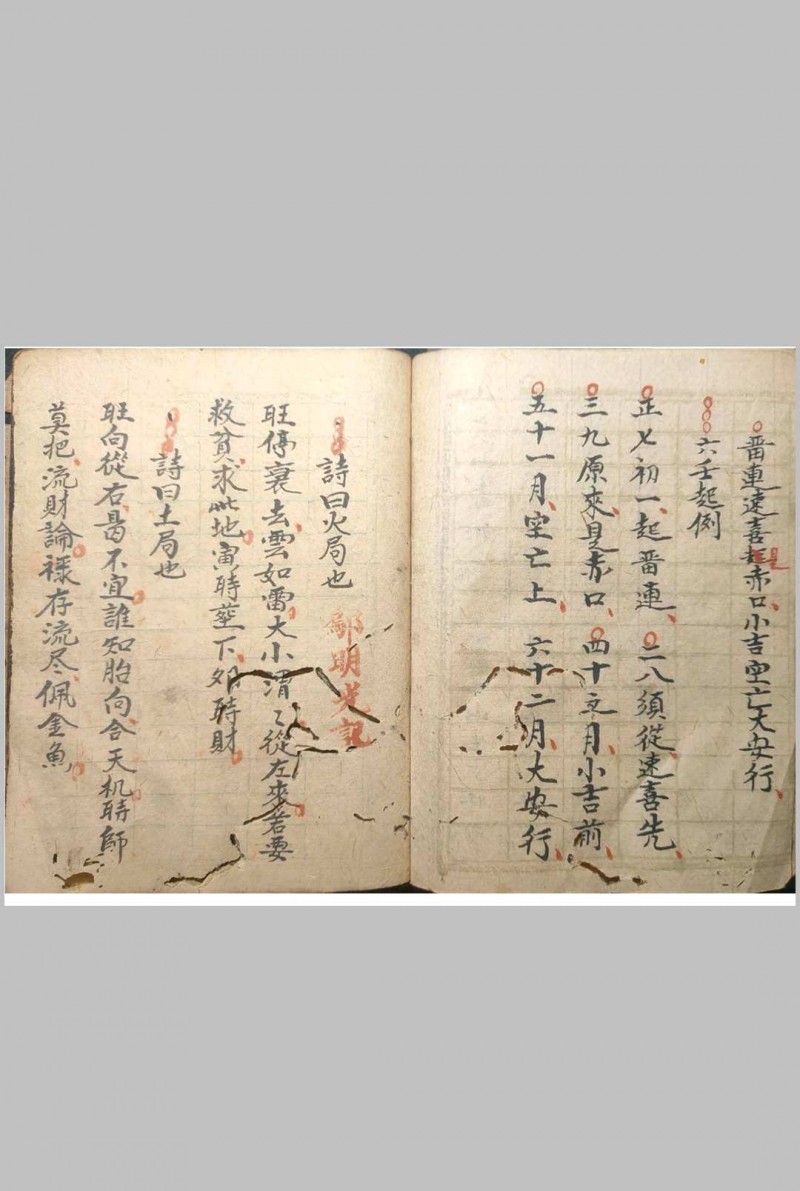 畱連速喜赤口小吉空亡大安行
六壬起例
正七初一起畱連 二八須從速喜先
三九原來是赤口 四十之月小吉前
五十一月空亡上 六十二月大安行
詩曰火局也
鄢明光記
旺停衰去雲如雷大小渭〻從左來若要
救貧求此地寅時塟下夘時財
詩曰土局也
旺向從右是不宜誰知胎向合天机時師
莫把流財論祿存流尽佩金魚